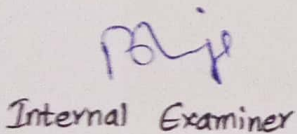 Internal Examiner